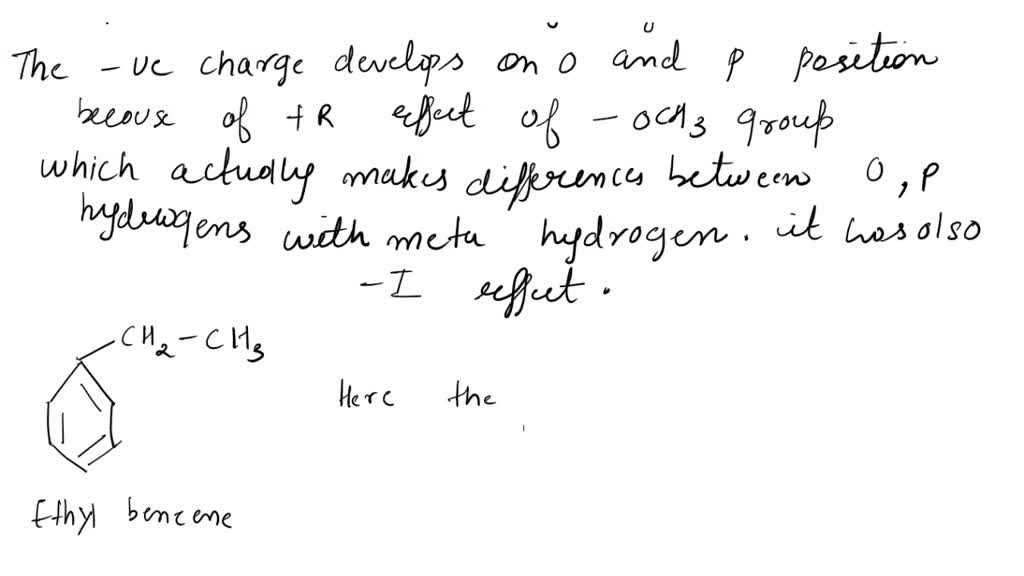 The -ve charge develops on o and p position
becouse of +R effect of - OCH3 group
which actually makes differences between o, p
hydrogens with meta hydrogen. it has also
-I effect.
CH2-CH3
Here the
Ethyl benzene